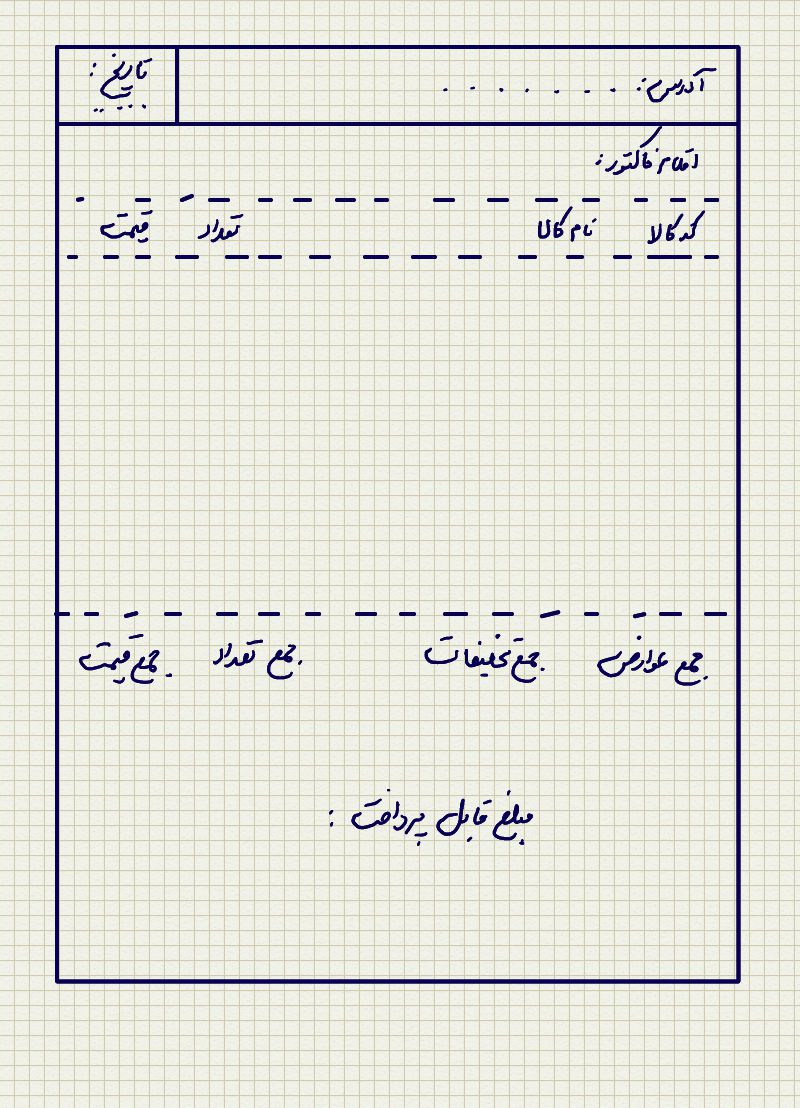 آدرس: . . . . . . . تاریخ: ....
اقلام فاکتور:
کد کالا نام کالا تعداد قیمت
جمع عوارض جمع تخفیفات جمع تعداد جمع قیمت
مبلغ قابل پرداخت :